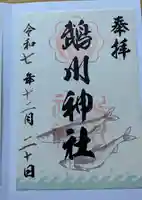 奉拝
鵡川神社
令和七年十二月二十日